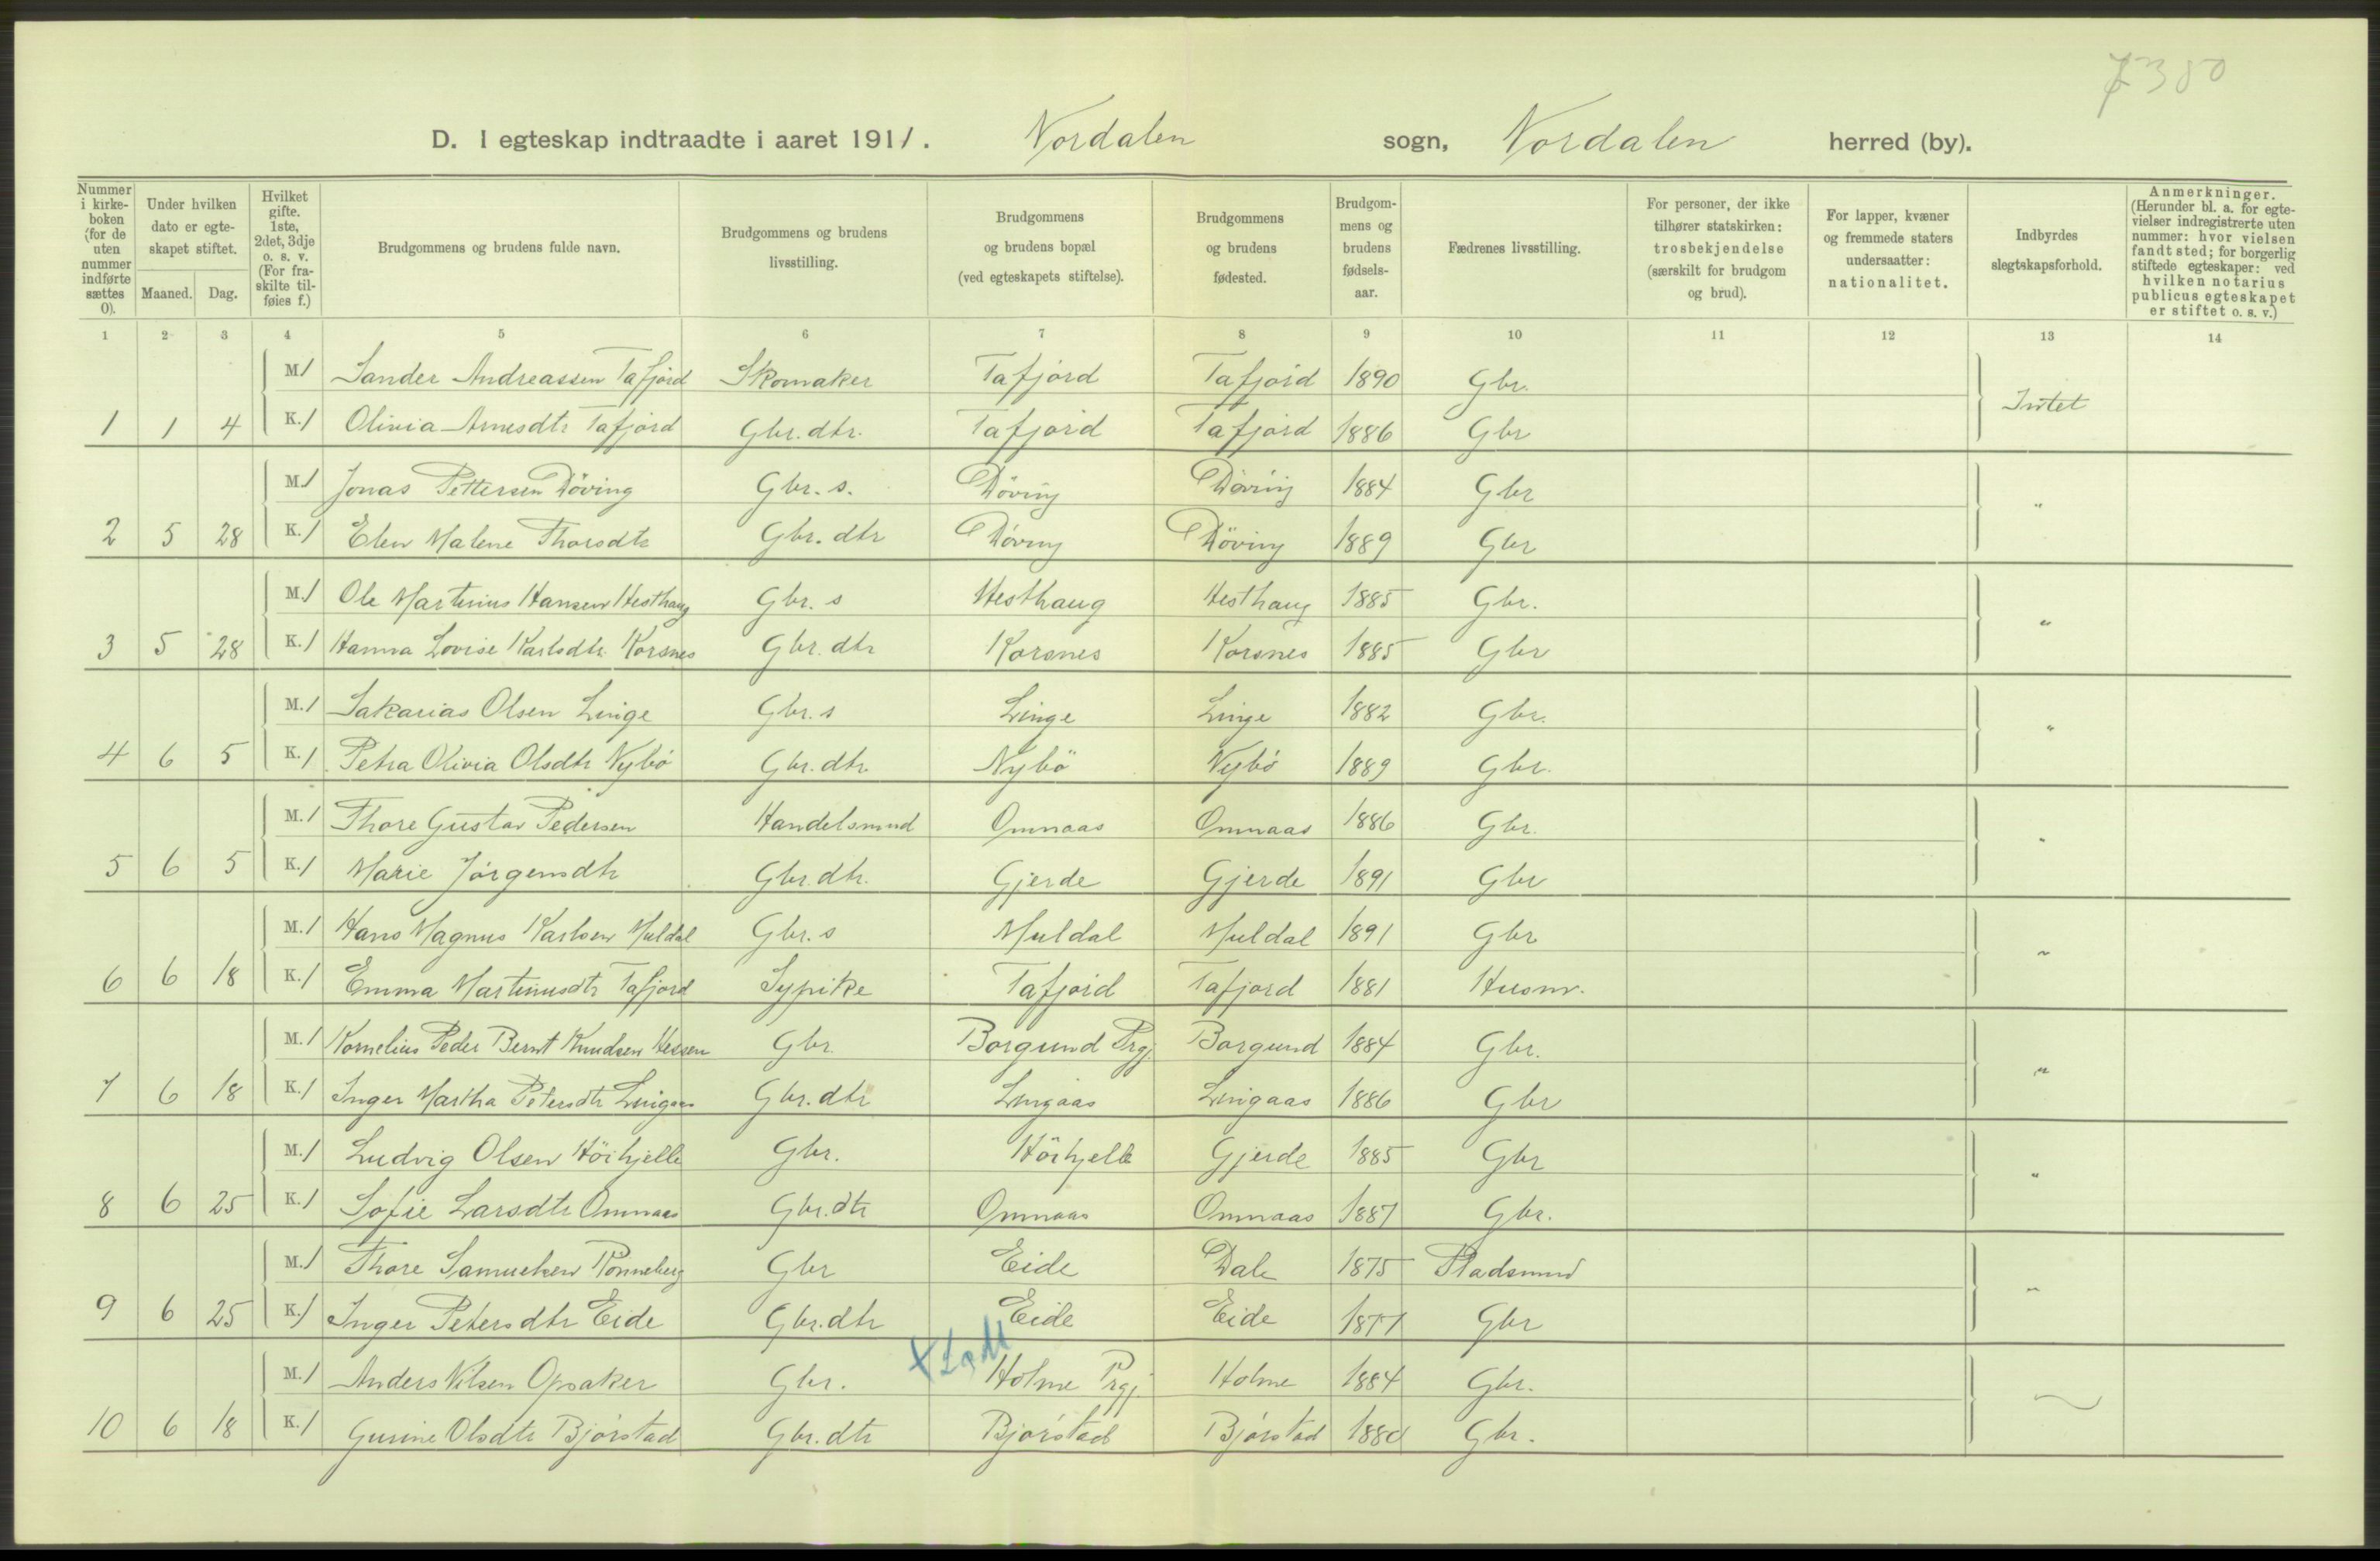 7380
D. I egteskap indtraadte i aaret 1911. Nordalen sogn, Nordalen herred (by).
Nummer i kirke-boken (for de uten nummer indførte sættes 0). Under hvilken dato er egte-skapet stiftet. Maaned. Dag. Hvilket gifte. 1ste, 2det, 3dje o. s. v. (For fra-skilte til-føies f.) Brudgommens og brudens fulde navn. Brudgommens og brudens livsstilling. Brudgommens og brudens bopæl (ved egteskapets stiftelse). Brudgommens og brudens fødested. Brudgom-mens og brudens fødsels-aar. Fædrenes livsstilling. For personer, der ikke tilhører statskirken: trosbekjendelse (særskilt for brudgom og brud). For lapper, kvæner og fremmede staters undersaatter: nationalitet. Indbyrdes slegtskapsforhold. Anmerkninger. (Herunder bl. a. for egte-vielser indregistrerte uten nummer: hvor vielsen fandt sted; for borgerlig stiftede egteskaper: ved hvilken notarius publicus egteskapet er stiftet o. s. v.)
1 2 3 4 5 6 7 8 9 10 11 12 13 14
M. 1 Sander Andreassen Tafjord Skomaker Tafjord Tafjord 1890 Gbr.
1 1 4 K. 1 Olivia Arnesdtr Tafjord Gbr. dtr. Tafjord Tafjord 1886 Gbr Intet
M. 1 Jonas Pettersen Döving Gbr. s. Döving Döving 1884 Gbr
2 5 28 K. 1 Elen Malene Thorsdtr Gbr. dtr Döving Döving 1889 Gbr "
M. 1 Ole Martinius Hansen Hesthaug Gbr. s Hesthaug Hesthaug 1885 Gbr.
3 5 28 K. 1 Hanna Lovise Karlsdtr. Korsnes Gbr. dtr Korsnes Korsnes 1885 Gbr "
M. 1 Sakarias Olsen Linge Gbr. s Linge Linge 1882 Gbr.
4 6 5 K. 1 Petra Olivia Olsdtr Nybö Gbr. dtr Nybö Nybö 1889 Gbr. "
M. 1 Thore Gustav Pedersen Handelsmnd Omnaas Omnaas 1886 Gbr.
5 6 5 K. 1 Marie Jörgensdtr Gbr. dtr. Gjerde Gjerde 1891 Gbr "
M. 1 Hans Magnus Karlsen Muldal Gbr. s Muldal Muldal 1891 Gbr
6 6 18 K. 1 Emma Martinusdtr Tafjord Sypike Tafjord Tafjord 1881 Husm. "
M. 1 Kornelius Peder Bernt Knudsen Hessen Gbr. Borgund Prgj. Borgund 1884 Gbr.
7 6 18 K. 1 Inger Martha Petersdtr Lingaas Gbr. dtr Lingaas Lingaas 1886 Gbr "
M. 1 Ludvig Olsen Höihjelle Gbr. Höihjelle Gjerde 1885 Gbr
8 6 25 K. 1 Sofie Larsdtr Omnaas Gbr. dtr Omnaas Omnaas 1887 Gbr. "
M. 1 Thore Samuelsen Rönneberg Gbr Eide Dale 1875 Pladsmnd
9 6 25 K. 1 Inger Petersdtr Eide Gbr. dtr Eide Eide 1877 Gbr "
M. 1 Anders Nilsen Opsaker Gbr. Holme Prgj. Holme 1884 Gbr.
10 6 18 K. 1 Gurine Olsdtr Bjørstad Gbr. dtr Bjørstad Bjørstad 1880 Gbr.